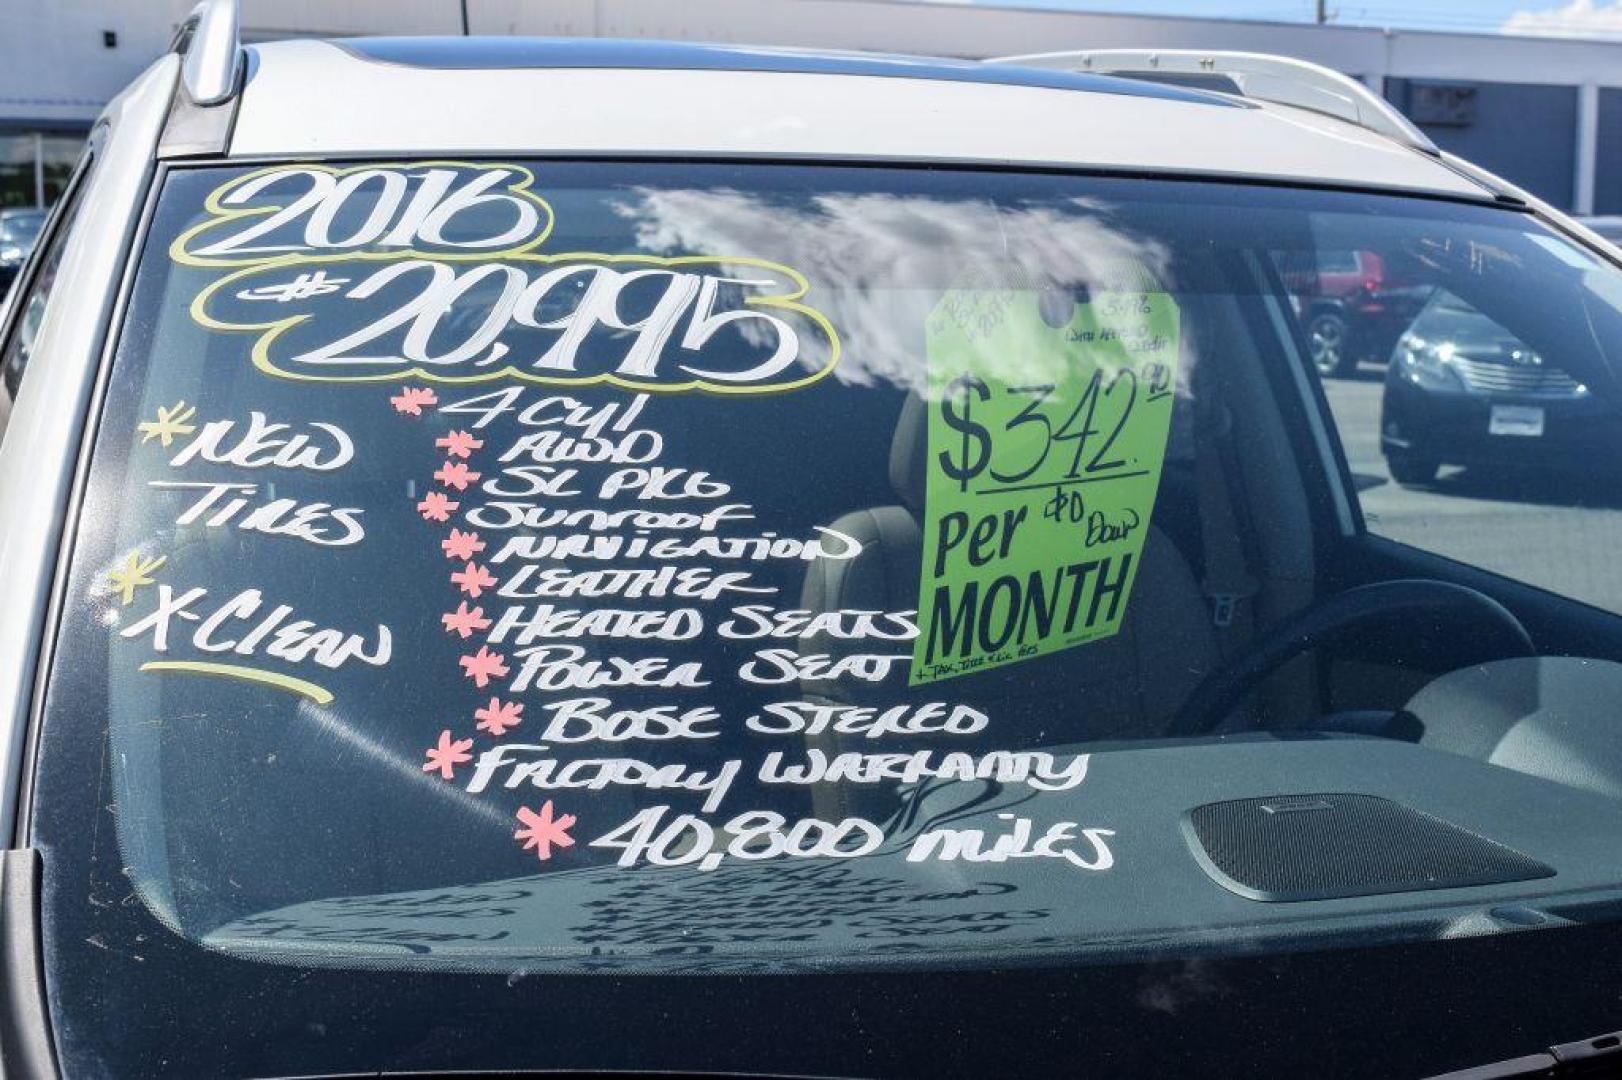 2016
$20,995
* New
Tires
* X-Clean
* 4 Cyl
* AWD
* SL PKG
* Sunroof
* Navigation
* Leather
* Heated Seats
* Power Seat
* Bose Stereo
* Factory Warranty
* 40,800 miles
$342.90
Per $0 Down
MONTH
+ Tax, Title & Lic Fees